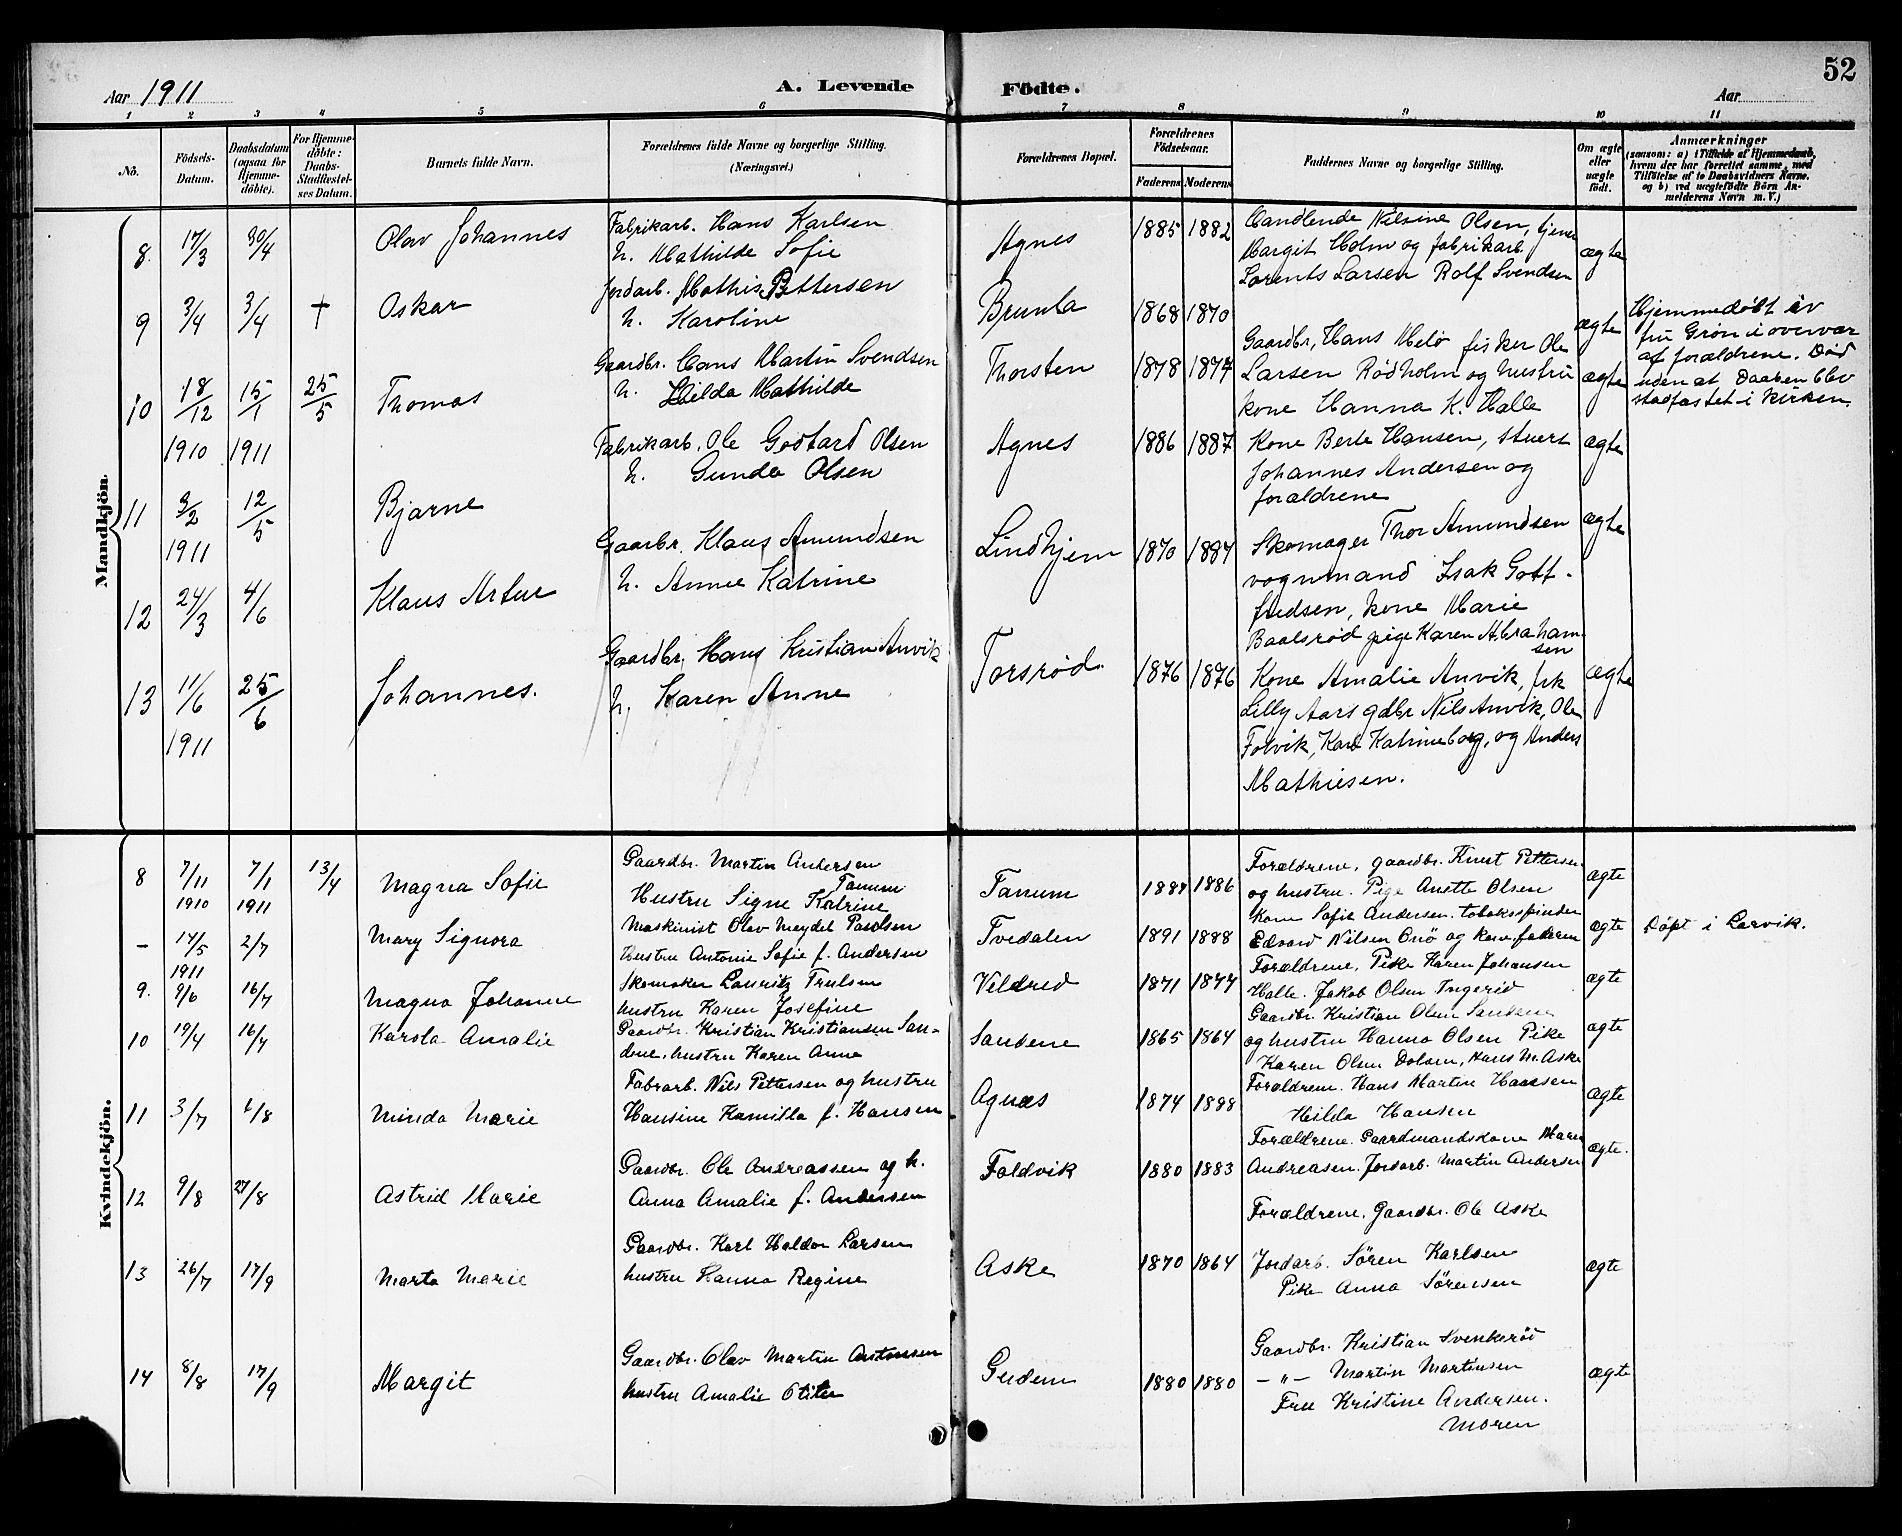 52
Aar 1911
A. Levende Födte.
Aar
1 2 3 4 5 6 7 8 9 10 11
No.
Födsels-Datum.
Daabsdatum (ogsaa for Hjemmedöbte).
For Hjemmedöbte: Daabs-Stadfæstelses Datum.
Barnets fulde Navn.
Forældrenes fulde Navne og borgerlige Stilling. (Næringsvei.)
Forældrenes Bopæl.
Forældrenes Födselsaar.
Faderens Moderens
Faddernes Navne og borgerlige Stilling.
Om ægte eller uægte födt.
Anmærkninger
(saasom: a) i Tilfælde af Hjemmedaab, hvem der har forrettet samme, med Tilföielse af to Daabsvidners Navne. og b) ved uægtefödte Börn Anmelderens Navn m. V.)
Mandkjön.
8. 17/3 30/4 Olav Johannes
Fabrikarb. Hans Karlsen
h. Mathilde Sofie
Agnes 1885 1882
Handlende Nilsine Olsen, tjener
Margit Holm og fabrikarb.
Lorents Larsen Rolf Svendsen
ægte
9 3/4 3/4 † Oskar
Jordarb. Mathis Pettersen
h. Karoline
Brunla 1868 1870 ægte
Hjemmedöbt av
fru Grön i overvær
af forældrene. Död
uden at Daaben blev
stadfæstet i kirken.
10 18/12 1910 15/1 1911 25/5 Thomas
Gaardbr. Hans Martin Svendsen
h. Hilda Mathilde
Thorsten 1878 1874
Gaardbr, Hans Melö fisker Ole
Larsen Rødholm og hustru
kone Hanna K. Halle
ægte
11 2/2 1911 12/5 Bjarne
Fabrikarb. Ole Godtard Olsen
h. Gunda Olsen
Agnes 1886 1887
Kone Berte Hansen, stuert
Johannes Andersen og
forældrene
ægte
12 24/3 4/6 Klaus Artur
Gaarbr. Klaus Amundsen
h. Anne Katrine
Lindhjem 1870 1884
Skomager Thor Amundsen
vognmand Isak Gott-
fredsen, kone Marie
Baalsrød pige Karen Abraham-
sen
ægte
13 11/6 1911 25/6 Johannes.
Gaardbr. Hans Kristian Anvik
h. Karen Anne
Torsrød. 1876 1876
Kone Amalie Anvik, frk
Lilly Aars gdbr Nils Anvik, Ole
Folvik, Karl Katrineborg, og Anders
Mathiesen.
ægte
Kvindekjön.
8 7/11 1910 7/1 1911 13/4 Magna Sofie
Gaardbr. Martin Andersen
Tanum
Hustru Signe Katrine
Tanum 1884 1886
Forældrene, gaardbr. Knut Pettersen
og hustru. Pige Anette Olsen
ægte
- 14/5 1911 2/7 Mary Signora
Maskinist Olav Meydel Paulsen
Hustru Antonie Sofie f. Andersen
Tvedalen 1891 1888
Kone Sofie Andersen. tobaksspinder
Edvard Nilsen Onö og kone, faderen
ægte Döpt i Larvik.
9. 9/6 16/7 Magna Johanne
Skomaker Lauritz Trulsen
hustru Karen Josefine
Veldred 1871 1874
Forældrene. Pike Karen Johansen
Halle. Jakob Olsen Ingerid
ægte
10 19/4 16/7 Karola Amalie
Gaardbr. Kristian Kristiansen San-
dene, hustru Karen Anne
Sandene 1865 1864
Gaardbr. Kristian Olsen Sandene
og hustru Hanna Olsen Pike
Karen Olsen Dolven, Hans M. Aske
ægte
11 3/7 6/8 Minda Marie
Fabrarb. Nils Pettersen og hustru
Hansine Kamilla f. Hansen
Agnæs 1874 1888
Forældrene. Hans Martin Hansen
Hilda Hansen
ægte
12 9/8 27/8 Astrid Marie
Gaardbr. Ole Andreassen og h.
Anna Amalie f. Andersen
Foldvik 1880 1883
Forældrene. Gaardmandskone Maren
Andreasen. Jordarb. Martin Andersen
ægte.
13 26/7 17/9 Marta Marie
Gaardbr. Karl Haldor Larsen
hustru Hanna Regine
Aske 1870 1864
Forældrene. Gaardbr. Ole Aske
Jordarb. Sören Karlsen
Pike Anna Sörensen
ægte
14 8/8 17/9 Margit
Gaardbr. Olav Martin Antonsen
hustru Amalie Otilie
Gudem 1880 1880
Gaardbr. Kristian Svenkeröd
-"- Martin Martinsen
Fru Kristine Andersen.
Moren
ægte